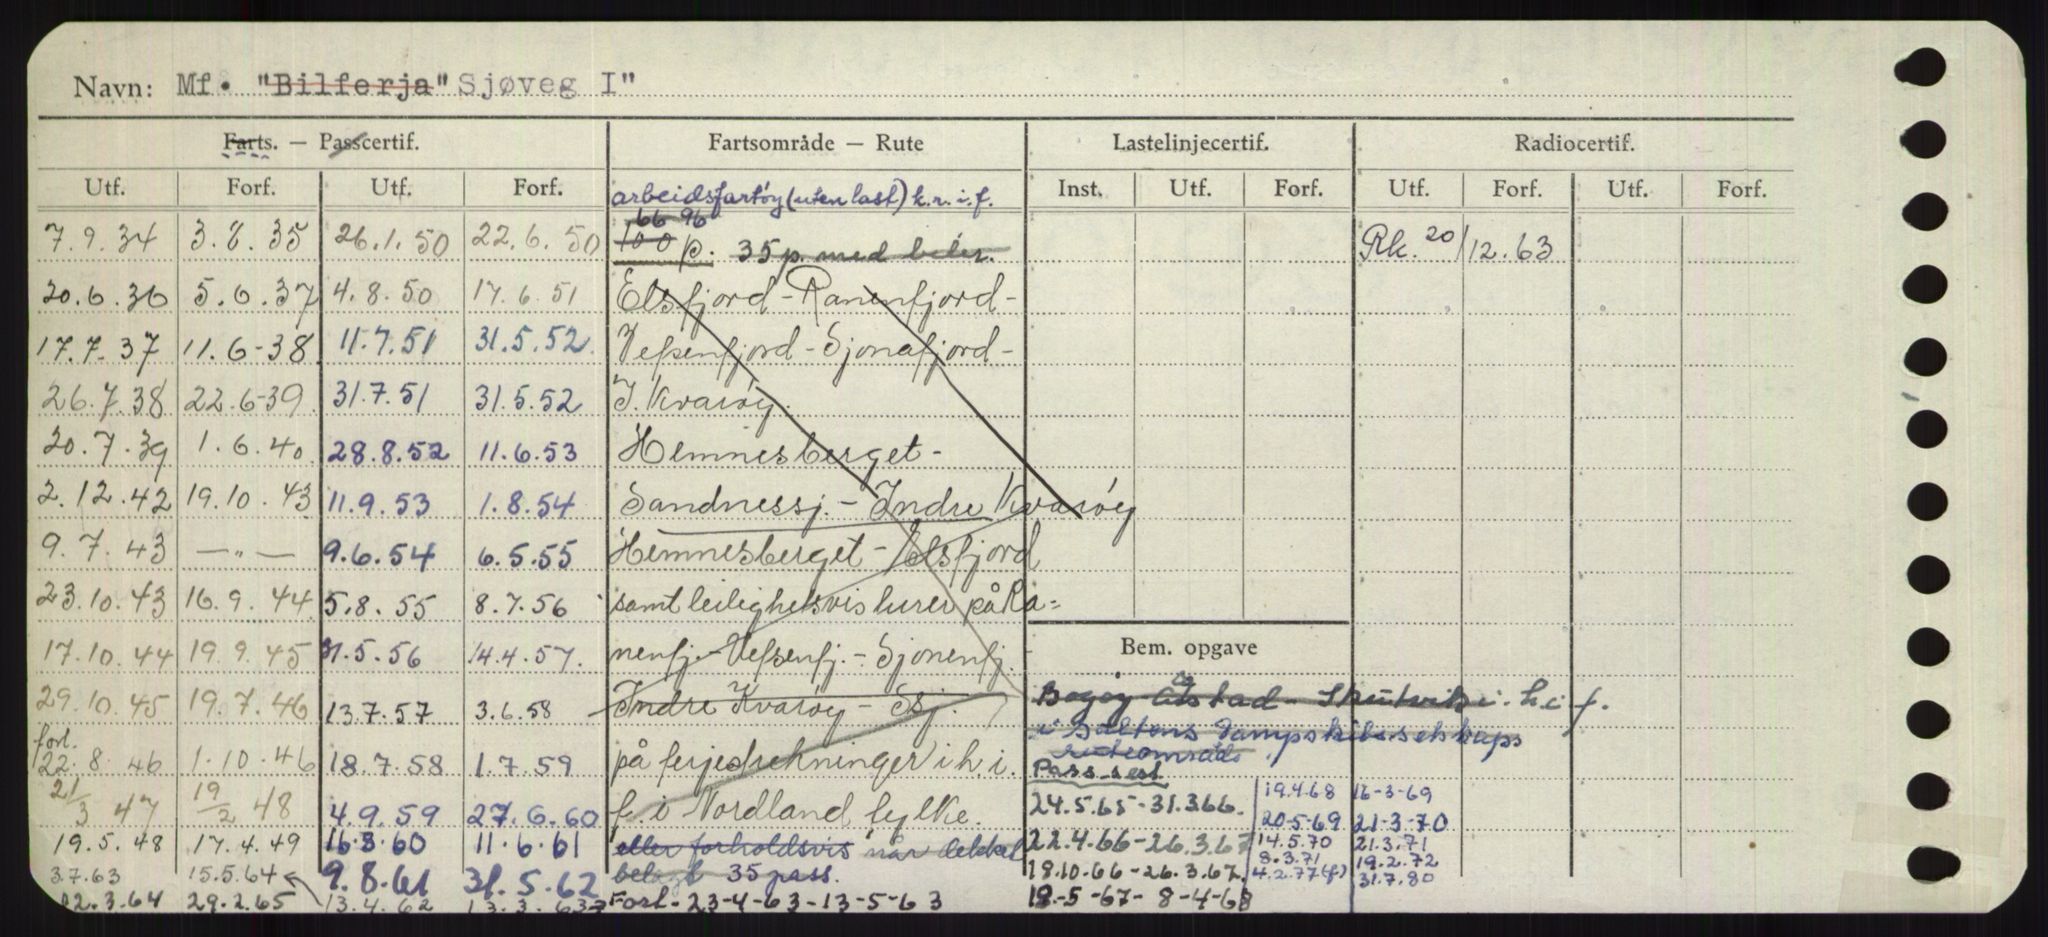 Navn: Mf. "Bilferja" Sjøveg I"
Farts. — Passcertif. Fartsområde — Rute Lastelinjecertif. Radiocertif.
Utf. Forf. Utf. Forf. arbeidsfartøy (uten last) k.r.i.f. Inst. Utf. Forf. Utf. Forf. Utf. Forf.
66 96
7.9.34 3.8.35 26.1.50 22.6.50 100 p. 35 p. med biler. Rk. 20/12.63
20.6.36 5.6.37 4.8.50 17.6.51 Elsfjord - Ranenfjord -
17.7.37 11.6-38 11.7.51 31.5.52 Vefsenfjord - Sjonafjord -
26.7.38 22.6-39 31.7.51 31.5.52 I. Kvarøy.
20.7.39 1.6.40 28.8.52 11.6.53 Hemnesberget -
2.12.42 19.10.43 11.9.53 1.8.54 Sandnessj. - Indre Kvarøy
9.7.43 — " — 9.6.54 6.5.55 Hemnesberget - Elsfjord
23.10.43 16.9.44 5.8.55 8.7.56 samt leilighetsvis turer på Ra-
17.10.44 19.9.45 31.5.56 14.4.57. nenfj. - Vefsenfj. - Sjonenfj. Bem. opgave
29.10.45 19.7.46 13.7.57 3.6.58 Indre Kvarøy - Ssj. Bogøy - - Skutvik i. h.i f.
i Saltens Dampskibsselskaps
ruteområde
forl. 22.8.46 1.10.46 18.7.58 1.7.59 på ferjestrekninger i h. i. Pass. sert.
21/3 47 19/2 48 4.9.59 27.6.60 f. i Nordland fylke. 24.5.65 - 31.3.66. 19.4.68 16-3-69
20-5-69 21-3-70
19.5.48 17.4.49 16.8.60 11.6.61 eller forholdsvis når dekket 22.4.66 - 26.3.67 14.5.70 21.3.71
8.3.71 19.2.72
3.7.63 15.5.64 9.8.61 31.5.62 belagt 35 pass. 18.10.66 - 26.3.67. 4.2.77(f.) 31.7.80
02.3.64 29.2.65 13.4.62 13.3.63 Forl - 23-4-63 - 13-5-63 12.-5-67 - 8-4-68